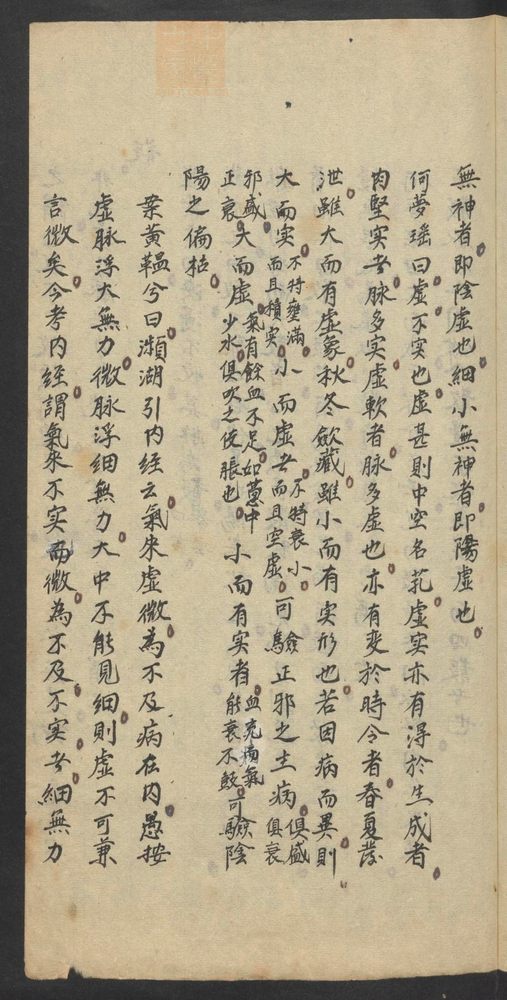 無神者即陰虛也細小無神者即陽虛也
何夢瑶曰虛不实也虛甚則中空名芤虛实亦有得於生成者
肉堅实者脉多实虛軟者脉多虛也亦有変於時令者春夏發
泄雖大而有虛象秋冬歛藏雖小而有实形也若因病而異則
大而实不特壅滿而且積实小而虛者不特衰小而且空虛可驗正邪之主病俱盛俱衰
邪盛正衰大而虛氣有餘血不足如葱中少水俱吹之使脹也小而有实者血充滿氣能衰不鼓可驗陰
陽之偏枯
案黄韞兮曰瀕湖引内经云氣來虛微為不及病在内愚按
虛脉浮大無力微脉浮细無力大中不能見细則虛不可兼
言微矣今考内經謂氣來不实而微為不及不实者細無力